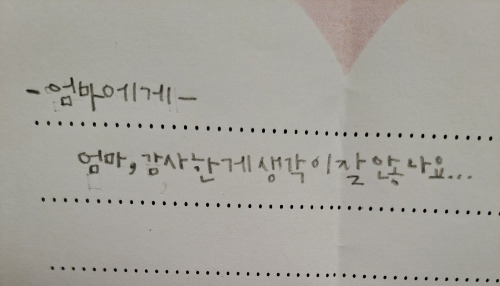 -엄마에게-
엄마, 감사한게 생각이 잘 않나요...